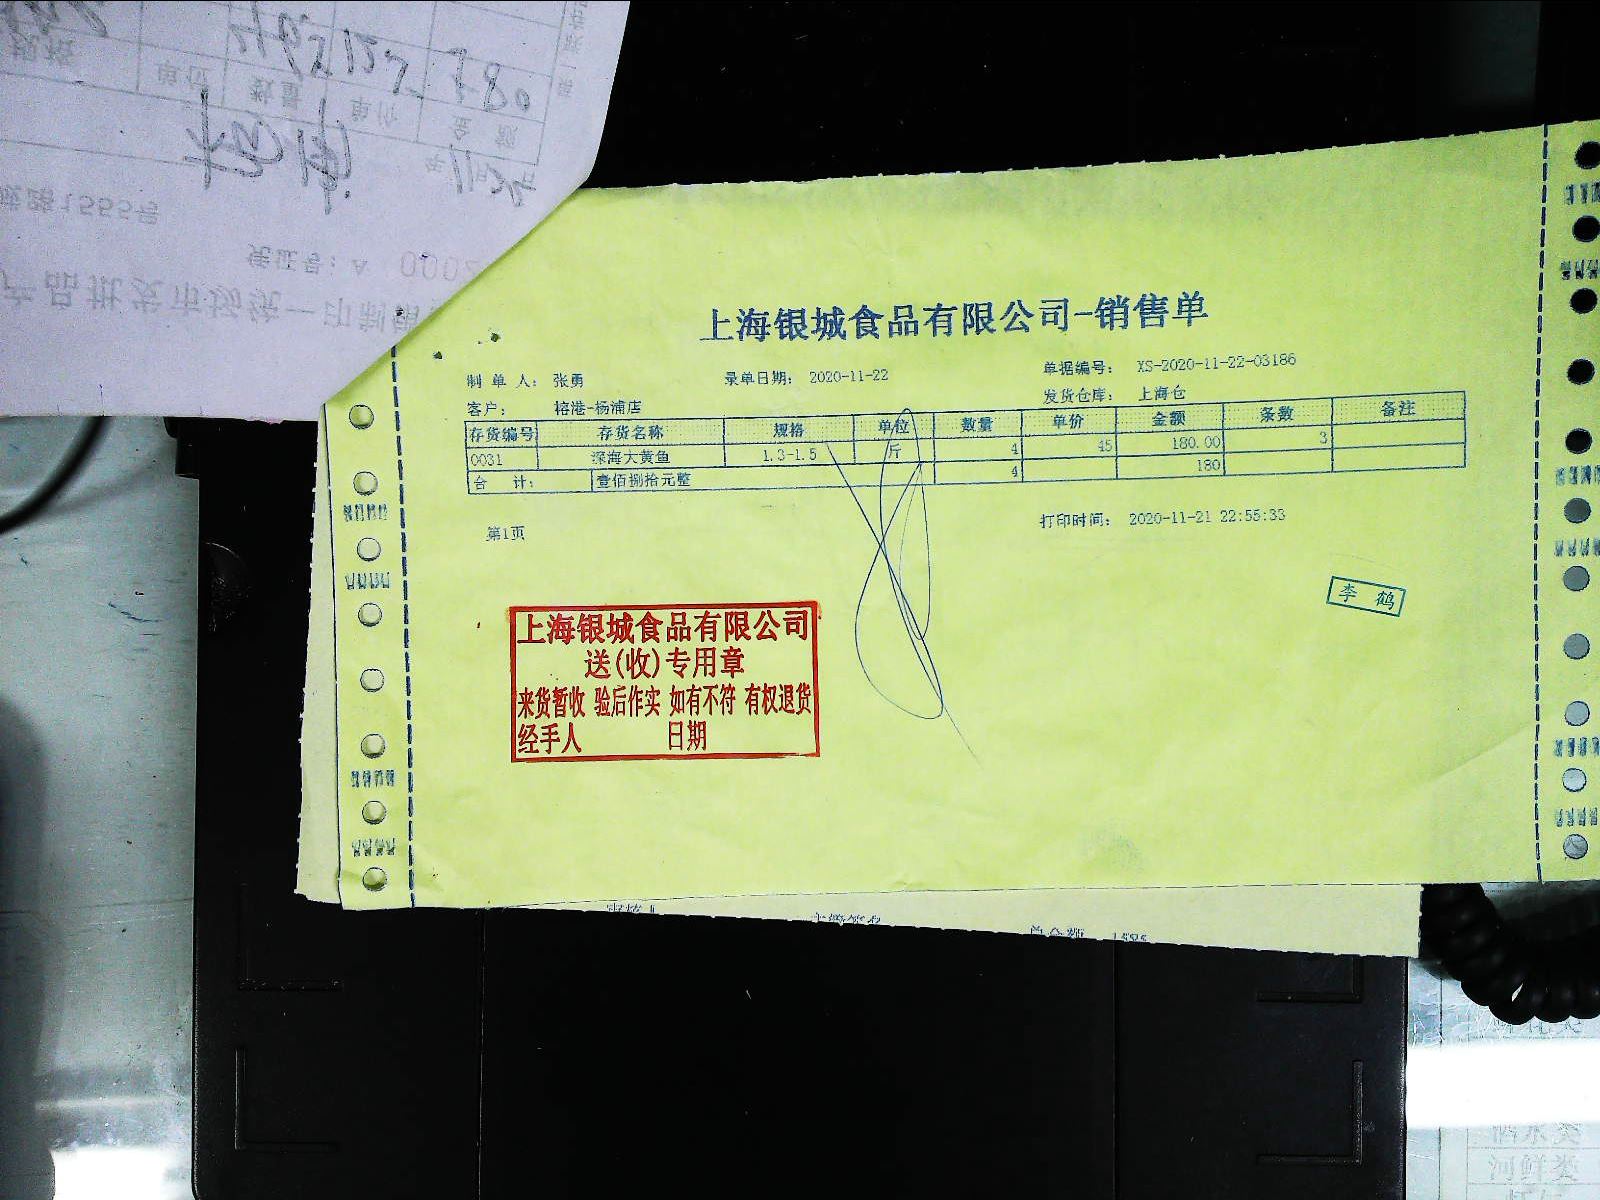 上海银城食品有限公司-销售单
制 单 人： 张勇 录单日期： 2020-11-22 单据编号： XS-2020-11-22-03186
客户： 榕港-杨浦店 发货仓库： 上海仓
存货编号 存货名称 规格 单位 数量 单价 金额 条数 备注
0031 深海大黄鱼 1.3-1.5 斤 4 45 180.00 3
合 计： 壹佰捌拾元整 4 180
第1页 打印时间： 2020-11-21 22:55:33
李 鹤
上海银城食品有限公司
送(收)专用章
来货暂收 验后作实 如有不符 有权退货
经手人 日期
单位 数量 单价 金 额
路1555号
凭证号：A 0002
产品批发市场统一印制
河鲜类